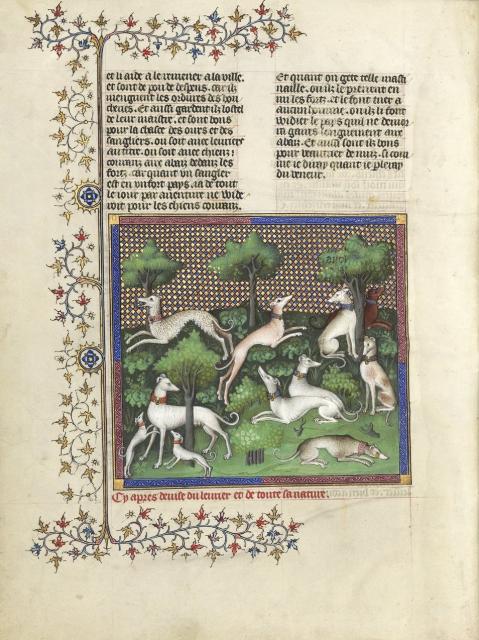 et li aide a le remener a la ville.
et sont de pou de despens. car ilz
menguent les ordures des bou
cheries. Et aussi gardent ilz lostel
de leur maistre. et sont bons
pour la chasse des ours et des
sangliers. ou soit avec levriers
au titre. ou soit avec chiens
courans aux abaiz dedans les
fortz. car quant un sangler
est en un fort pays. ia de tout
le iour par aventure ne vuide
roit pour les chiens courans.
Et quant on gete telle masti
naille. ou ilz le prenent en
mi les fortz. et le font tuer a
aucun homme. ou ilz li font
vuidier le pays quil ne demor
ra gaires longuement aux
abaiz. Et aussi sont ilz bons
pour de nuiz. si com
me ie diray quant ie pleray
du veneur.
Cy apres devise du levrier et de toute sa nature.